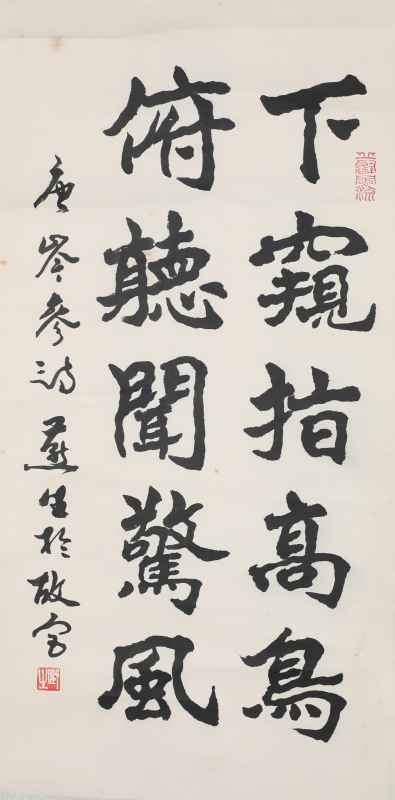 下窺指高鳥
俯聽聞驚風
唐岑參詩燕生於故宮